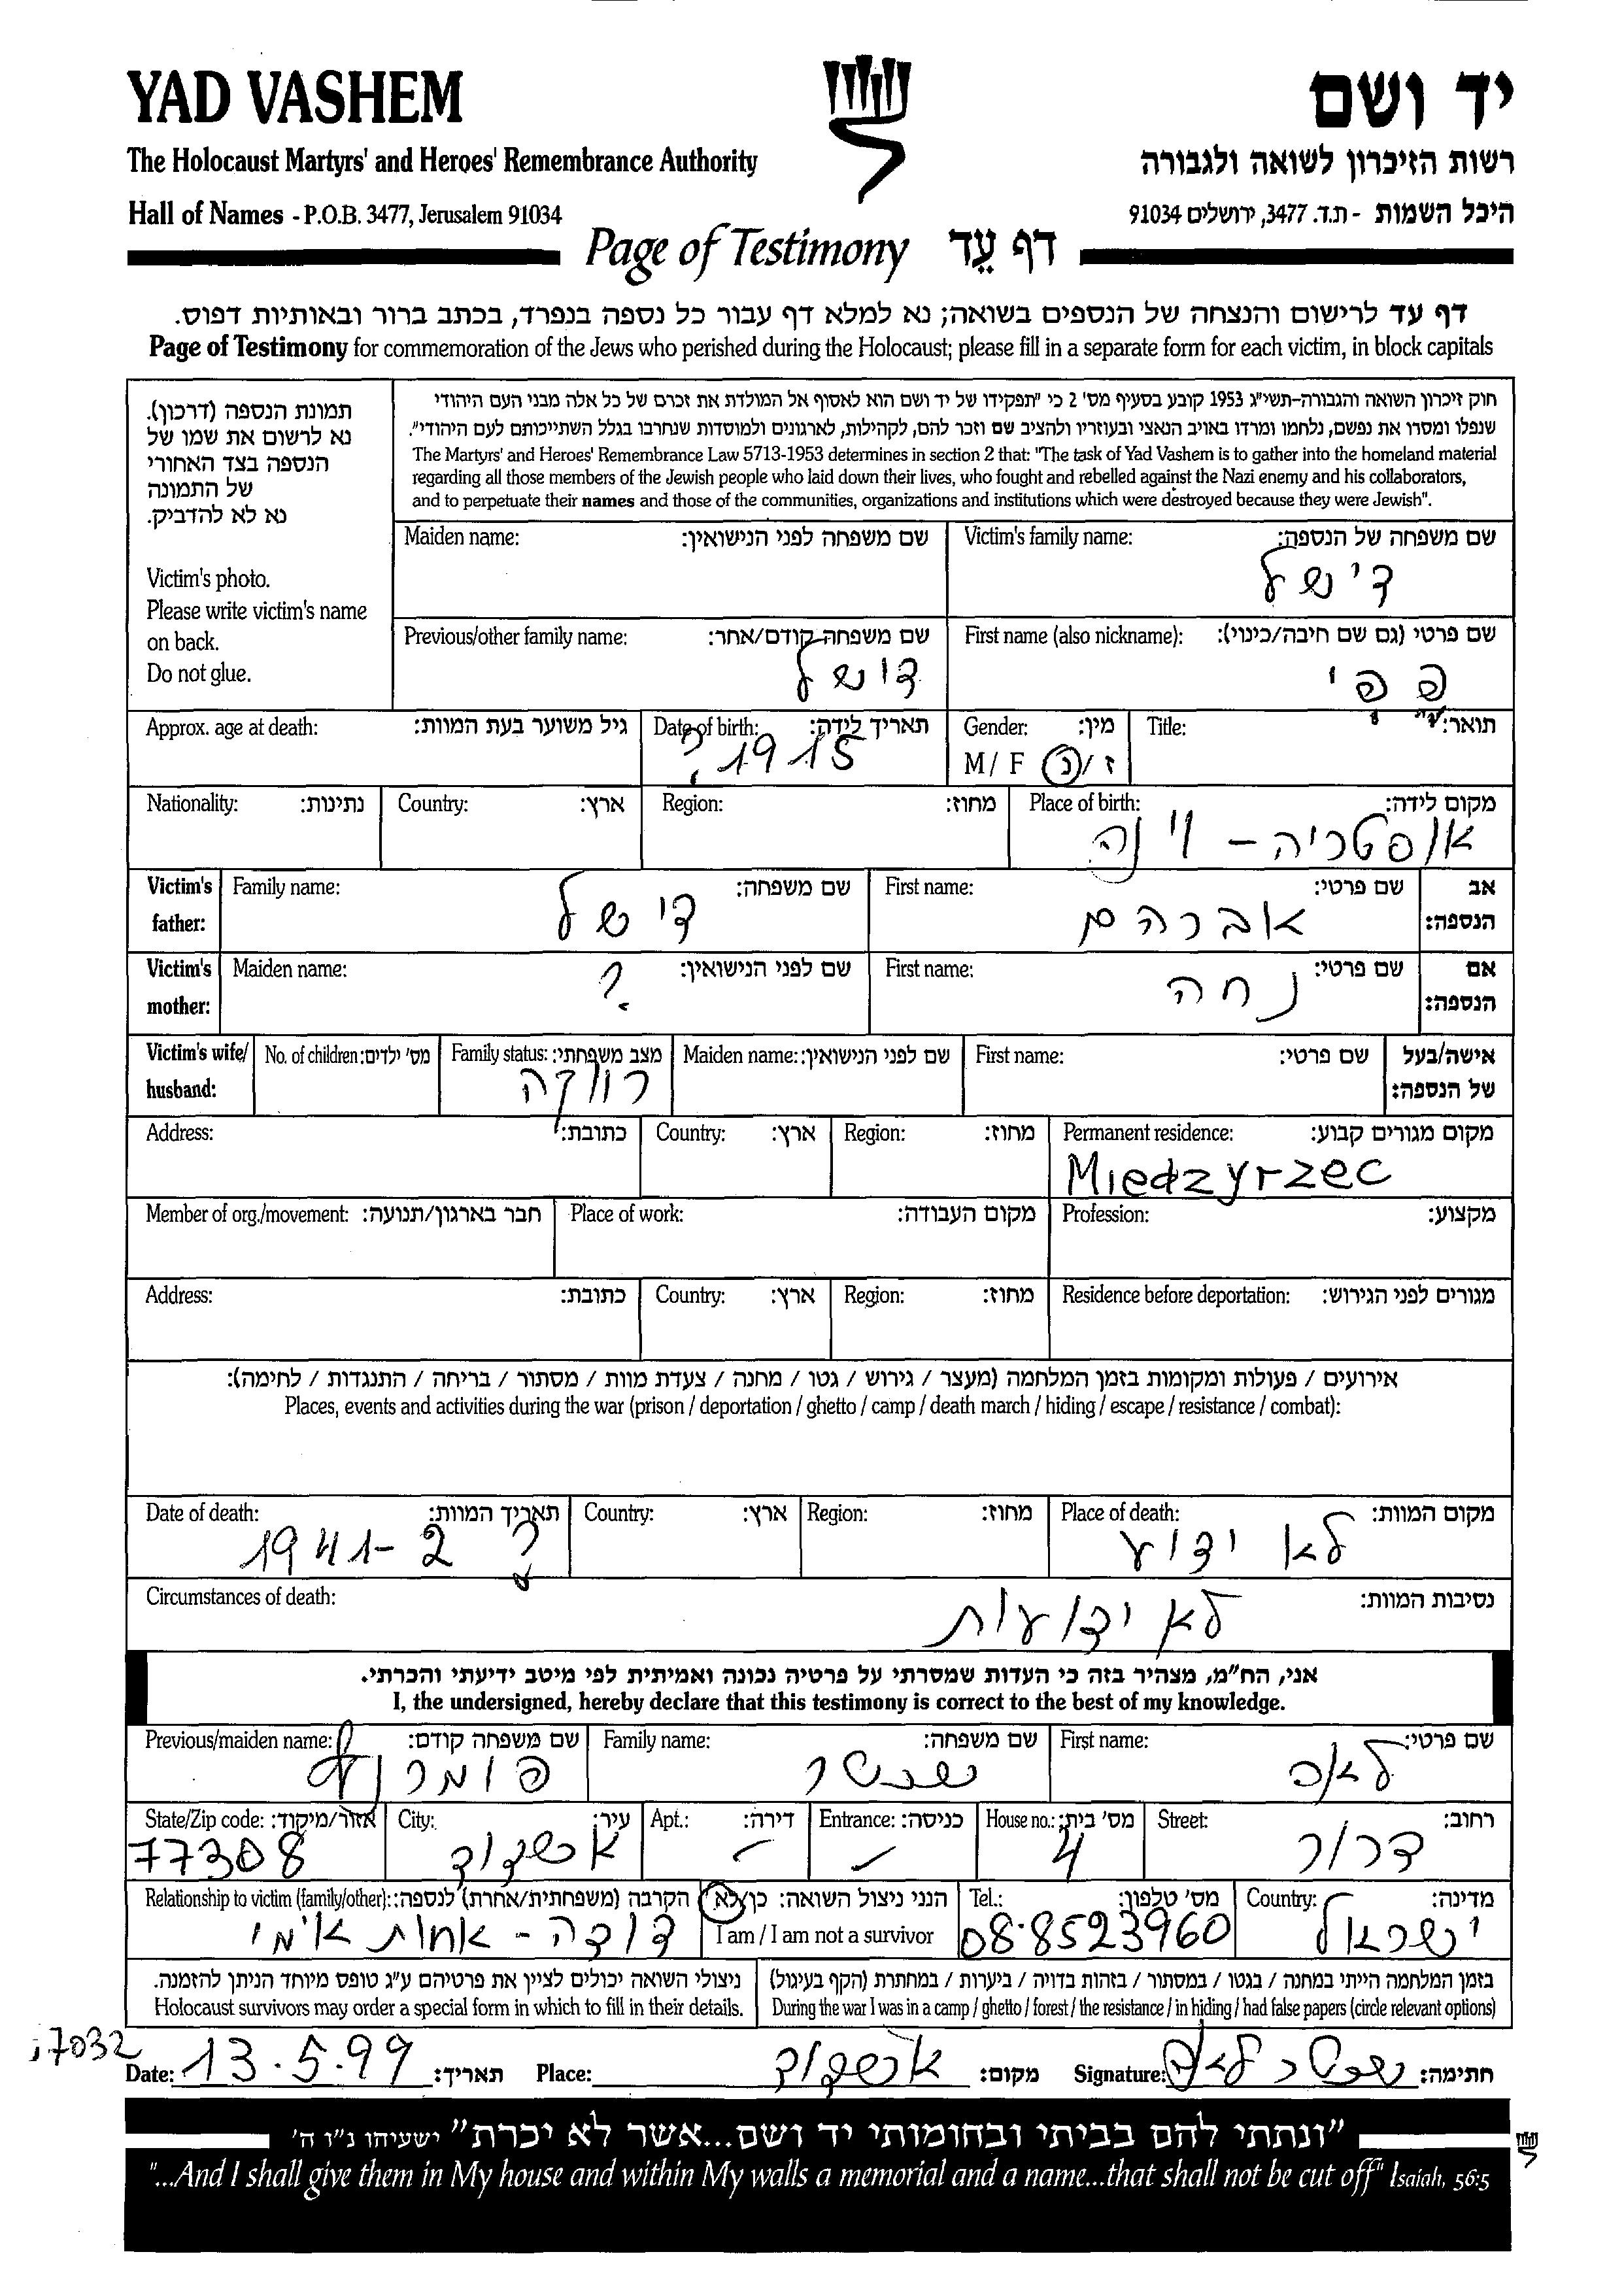 YAD VASHEM
יד ושם
The Holocaust Martyrs' and Heroes' Remembrance Authority
רשות הזיכרון לשואה ולגבורה
Hall of Names - P.O.B. 3477, Jerusalem 91034
היכל השמות - ת.ד. 3477, ירושלים 91034
Page of Testimony דף עֵד
דף עד לרישום והנצחה של הנספים בשואה; נא למלא דף עבור כל נספה בנפרד, בכתב ברור ובאותיות דפוס.
Page of Testimony for commemoration of the Jews who perished during the Holocaust; please fill in a separate form for each victim, in block capitals
תמונת הנספה (דרכון).
נא לרשום את שמו של
הנספה בצד האחורי
של התמונה
נא לא להדביק.
Victim's photo.
Please write victim's name
on back.
Do not glue.
חוק זיכרון השואה והגבורה-תשי"ג 1953 קובע בסעיף מס' 2 כי "תפקידו של יד ושם הוא לאסוף אל המולדת את זכרם של כל אלה מבני העם היהודי
שנפלו ומסרו את נפשם, נלחמו ומרדו באויב הנאצי ובעוזריו ולהציב שם וזכר להם, לקהילות, לארגונים ולמוסדות שנחרבו בגלל השתייכותם לעם היהודי".
The Martyrs' and Heroes' Remembrance Law 5713-1953 determines in section 2 that: "The task of Yad Vashem is to gather into the homeland material
regarding all those members of the Jewish people who laid down their lives, who fought and rebelled against the Nazi enemy and his collaborators,
and to perpetuate their names and those of the communities, organizations and institutions which were destroyed because they were Jewish".
Maiden name: שם משפחה לפני הנישואין: Victim's family name: שם משפחה של הנספה:
דישל
Previous/other family name: שם משפחה קודם/אחר: First name (also nickname): שם פרטי (גם שם חיבה/כינוי):
דושל
פפי
Approx. age at death: גיל משוער בעת המוות: Date of birth: תאריך לידה: Gender: מין: Title: תואר:
? 1915
M / F ז / נ
Nationality: נתינות: Country: ארץ: Region: מחוז: Place of birth: מקום לידה:
אוסטריה - וינה
Victim's father: Family name: שם משפחה: First name: שם פרטי: אב הנספה:
דישל
אברהם
Victim's mother: Maiden name: שם לפני הנישואין: First name: שם פרטי: אם הנספה:
?
נחה
Victim's wife/ husband: No. of children: מס' ילדים: Family status: מצב משפחתי: Maiden name: שם לפני הנישואין: First name: שם פרטי: אישה/בעל של הנספה:
רווקה
Address: כתובת: Country: ארץ: Region: מחוז: Permanent residence: מקום מגורים קבוע:
Miedzyrzec
Member of org./movement: חבר בארגון/תנועה: Place of work: מקום העבודה: Profession: מקצוע:
Address: כתובת: Country: ארץ: Region: מחוז: Residence before deportation: מגורים לפני הגירוש:
אירועים / פעולות ומקומות בזמן המלחמה (מעצר / גירוש / גטו / מחנה / צעדת מוות / מסתור / בריחה / התנגדות / לחימה):
Places, events and activities during the war (prison / deportation / ghetto / camp / death march / hiding / escape / resistance / combat):
Date of death: תאריך המוות: Country: ארץ: Region: מחוז: Place of death: מקום המוות:
1941-2 ?
לא ידוע
Circumstances of death: נסיבות המוות:
לא ידועות
אני, הח"מ, מצהיר בזה כי העדות שמסרתי על פרטיה נכונה ואמיתית לפי מיטב ידיעתי והכרתי.
I, the undersigned, hereby declare that this testimony is correct to the best of my knowledge.
Previous/maiden name: שם משפחה קודם: Family name: שם משפחה: First name: שם פרטי:
שכטר
לאה
State/Zip code: אזור/מיקוד: City: עיר: Apt.: דירה: Entrance: כניסה: House no.: מס' בית: Street: רחוב:
77308 אשדוד - - 4 דרור
Relationship to victim (family/other): הקרבה (משפחתית/אחרת) לנספה: הנני ניצול השואה: כן/לא Tel.: מס' טלפון: Country: מדינה:
דודה - אחות אימי
I am / I am not a survivor
08-8523960
ישראל
ניצולי השואה יכולים לציין את פרטיהם ע"ג טופס מיוחד הניתן להזמנה.
Holocaust survivors may order a special form in which to fill in their details.
בזמן המלחמה הייתי במחנה / בגטו / במסתור / בזהות בדויה / ביערות / במחתרת (הקף בעיגול)
During the war I was in a camp / ghetto / forest / the resistance / in hiding / had false papers (circle relevant options)
17032
Date: 13.5.99 תאריך: Place: אשדוד מקום: Signature: שכטר לאה חתימה:
"ונתתי להם בביתי ובחומותי יד ושם...אשר לא יכרת" ישעיהו נ"ו ה'
"...And I shall give them in My house and within My walls a memorial and a name...that shall not be cut off" Isaiah, 56:5